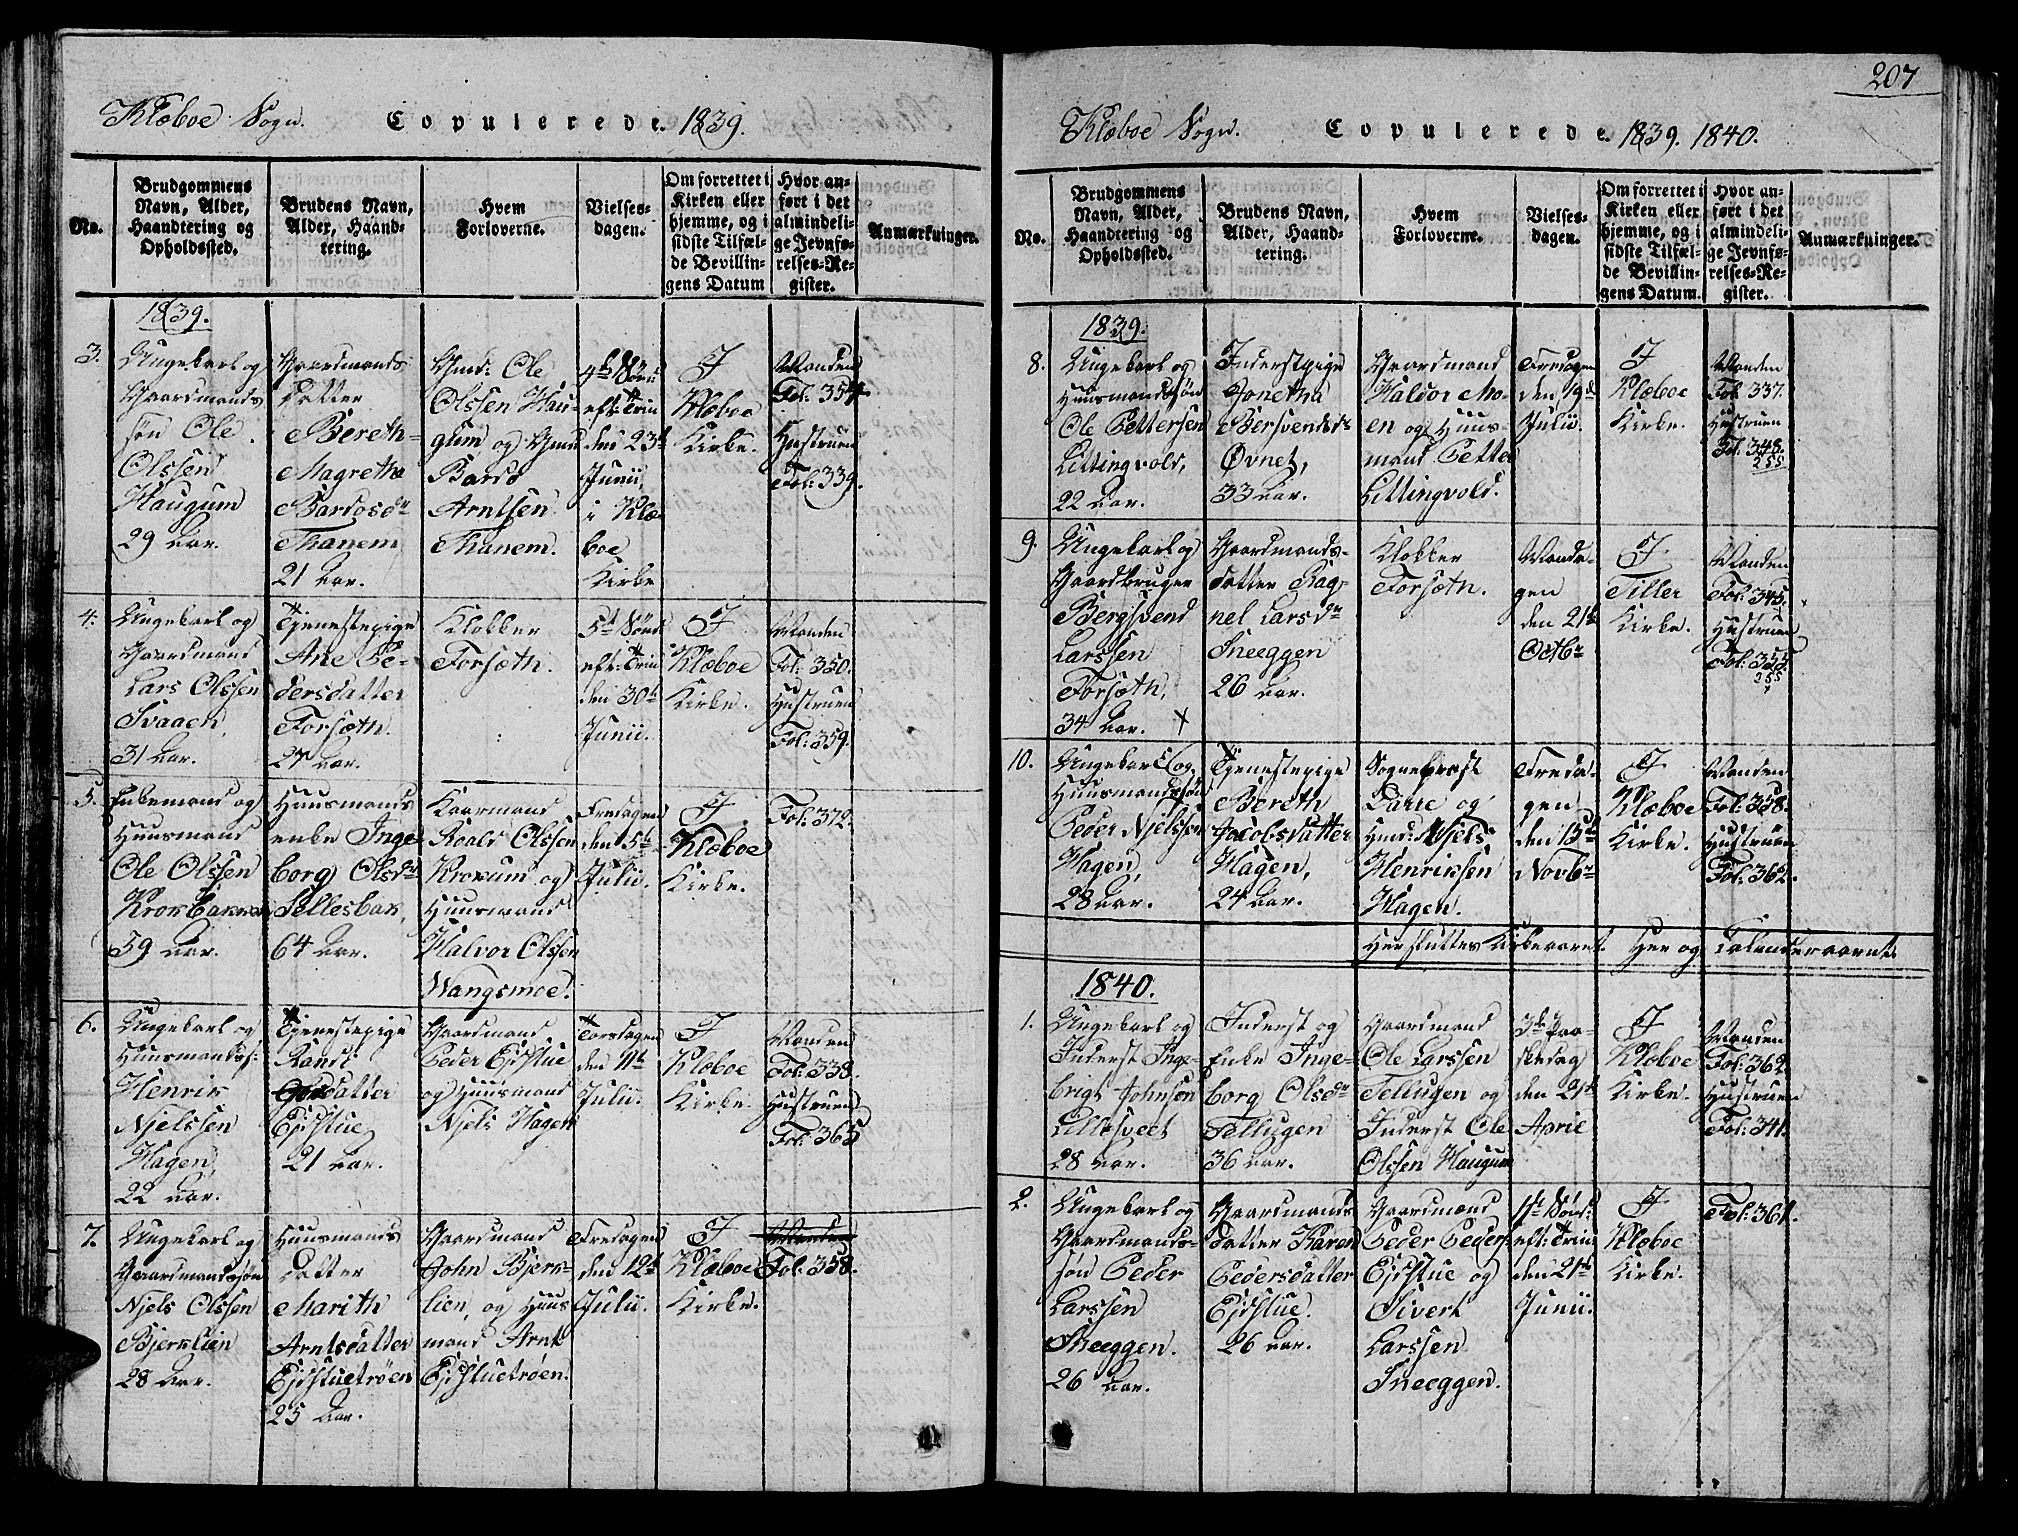 Klæboe Sogn. Copulerede. 1839.
No.
Brudgommens
Navn, Alder,
Haandtering og
Opholdssted.
Brudens Navn,
Alder, Haand-
tering.
Hvem
Forloverne.
Vielses-
dagen.
Om forrettet i
Kirken eller
hjemme, og i
sidste Tilfæl-
de Bevillin-
gens Datum
Hvor an-
ført i det
almindeli-
ge Jevnfø-
relses-Re-
gister.
Anmærkninger.
1839.
3.
Ungekarl og
Gaardmands
søn Ole
Olssen
Haugum
29 Aar.
Gaardmands
Datter
Bereth
Magrethe
Bardosdr
Thanem
21 Aar.
Gmd: Ole
Olssen Hau-
glum og Gmd
Bardo
Arntsen
Thanem.
4de Sønd
eft: Trin
den 23de
Junii,
i Klæ-
boe
Kirke
I
Klæboe
Kirke.
Manden
Fol: 354.
Hustruen
Fol: 339.
4.
Ungekarl og
Gaardmand
Lars Olssen
Svaaen,
31 Aar.
Tjenestepige
Ane Pe-
dersdatter
Forsæth.
27 Aar.
Klokker
Forsæth.
5te Sønd
eft: Trin
den 30te
Junii.
I
Klæboe
Kirke.
Manden
Fol: 350.
Hustruen
Fol: 359.
5.
Enkemand og
Huusmand
Ole Olssen
Krokbakken
59 Aar.
Huusmands
enke Inge-
borg Olsdr
Sellesbak,
64 Aar.
Kaarmand
Roald Olssen
Kroxum og
Huusmand
Halvor Olssen
Wangsmoe.
Fredagen
den 5te
Julii.
I
Klæboe
Kirke.
Fol: 372.
6.
Ungekarl og
Huusmandss:
Henrik
Njelssen
Hagen,
22 Aar.
Tjenestepige
Randi
datter
Ejdstue
21 Aar.
Gaardmand
Peder Ejdstue
og Huusmand
Njels Hagen
Torsdagen
den 11te
Julii.
I
Klæboe
Kirke.
Manden
Fol: 338.
Hustruen
Fol: 365
7.
Ungekarl og
Gaardmandssøn
Njels Olssen
Bjerklien
28 Aar.
Huusmands
Datter
Marith
Arntsdatter
Ejdstuetrøen
25 Aar.
Gaardmand
John Bjerk-
lien, og Huus
mand Arnt
Ejdstuetrøen.
Fredagen
den 12te
Julii.
I
Klæboe
Kirke.
Manden
Fol: 358.
207
Klæboe Sogn. Copulerede. 1839. 1840.
No.
Brudgommens
Navn, Alder,
Haandtering og
Opholdssted.
Brudens Navn,
Alder, Haand-
tering.
Hvem
Forloverne.
Vielses-
dagen.
Om forrettet i
Kirken eller
hjemme, og i
sidste Tilfæl-
de Bevillin-
gens Datum.
Hvor an-
ført i det
almindeli-
ge Jevnfø-
relses-Re-
gister.
Anmærkninger.
1839.
8.
Ungekarl og
Huusmandssøn
Ole Pettersen
Littingvold,
22 Aar.
Inderstpige
Jonetha
Bersvendsdr
Øvnet,
33 Aar.
Gaardmand
Haldor Mo-
en og Huus-
mand Petter
Littingvold.
Fredagen
den 19de
Julii.
I
Klæboe
Kirke.
Manden
Fol 337.
Hustruen
Fol. 348.
255
9.
Ungekarl og
Gaardbruger
Bergsvend
Larssen
Forsæth,
34 Aar. X
Gaardmands-
datter Rag-
nel Larsdr
Sneeggen
26 Aar.
Klokker
Forsæth.
Manda-
gen
den 21de
Octbr
I
Tiller
Kirke.
Manden
Fol: 345.
Hustruen
Fol: 353.
255
10.
Ungekarl og
Huusmandssøn
Peder Njelssen
Hagen,
28 Aar.
Tjenestepige
Bereth
Jacobsdatter
Hagen,
24 Aar.
Sognepræst
Darre og
Hmd: Njels
Henriksen
Hagen.
Freda-
gen
den 15de
Novbr
I
Klæboe
Kirke.
Manden
Fol: 358.
Hustruen
Fol: 362.
Her sluttes Kirkeaaret. Her og Calenderaaret.
1840.
1.
Ungekarl og
Inderst Inge-
brigt Johnsen
Lillesveet
28 Aar.
Inderst og
Enke Inge-
borg Olsdr
Tellugen
36 Aar.
Gaardmand
Ole Larssen
Tellugen og
Inderst Ole
Olssen Haugum
3de Paa-
skedag
den 21de
April
I
Klæboe
Kirke.
Manden
Fol: 362
Hustruen
Fol: 341.
2.
Ungekarl og
Gaardmands-
søn Peder
Larssen
Sneeggen.
26 Aar.
Gaardmands
datter Karen
Pedersdatter
Ejdstue.
26 Aar.
Gaardmand
Peder Peders:
Ejdstue og
Sivert
Larssen
Sneeggen.
1ste Sønd:
eft: Trin:
den 21de
Junii.
I
Klæboe
Kirke.
Fol: 361.